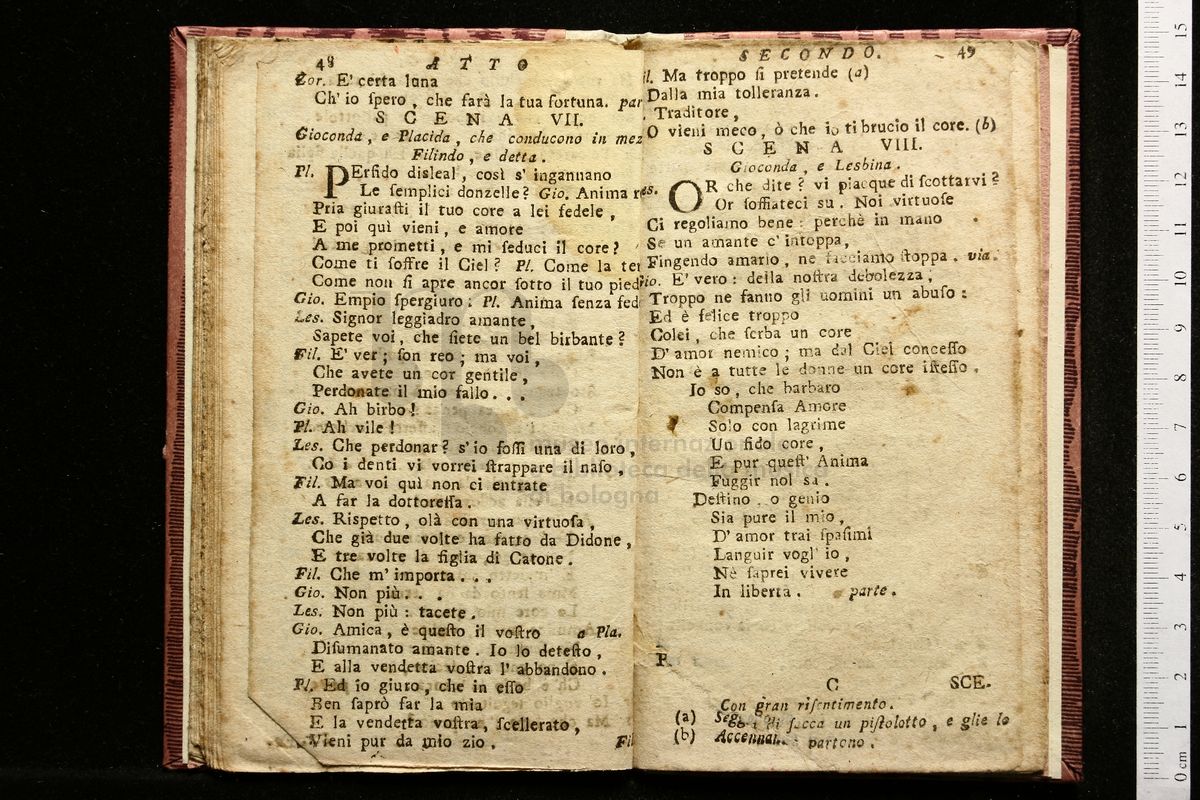 48 ATTO
Lor. E' certa luna
Ch' io spero, che farà la tua fortuna. par
SCENA VII.
Gioconda, e Placida, che conducono in mez
Filindo, e detta.
Pl. PErfido disleal, così s' ingannano
Le semplici donzelle? Gio. Anima r
Pria giurasti il tuo core a lei fedele,
E poi quì vieni, e amore
A me prometti, e mi seduci il core?
Come ti soffre il Ciel? Pl. Come la ter
Come non si apre ancor sotto il tuo pied
Gio. Empio spergiuro: Pl. Anima senza fed
Les. Signor leggiadro amante,
Sapete voi, che siete un bel birbante?
Fil. E' ver; son reo; ma voi,
Che avete un cor gentile,
Perdonate il mio fallo...
Gio. Ah birbo!
Pl. Ah vile!
Les. Che perdonar? s' io fossi una di loro,
Co i denti vi vorrei strappare il naso.
Fil. Ma voi quì non ci entrate
A far la dottoressa.
Les. Rispetto, olà con una virtuosa,
Che già due volte ha fatto da Didone,
E tre volte la figlia di Catone.
Fil. Che m' importa...
Gio. Non più...
Les. Non più: tacete.
Gio. Amica, è questo il vostro a Pla.
Disumanato amante. Io lo detesto,
E alla vendetta vostra l' abbandono.
Pl. Ed io giuro, che in esso
Ben saprò far la mia
E la vendetta vostra, scellerato,
Vieni pur da mio zio.
Fil
SECONDO. 49
il. Ma troppo si pretende (a)
Dalla mia tolleranza.
Traditore,
O vieni meco, ò che io ti brucio il core. (b)
SCENA VIII.
Gioconda, e Lesbina.
es. OR che dite? vi piacque di scottarvi?
Or soffiateci su. Noi virtuose
Ci regoliamo bene: perchè in mano
Se un amante c' intoppa,
Fingendo amarlo, ne facciamo stoppa. via.
Gio. E' vero: della nostra debolezza,
Troppo ne fanno gli uomini un abuso:
Ed è felice troppo
Colei, che serba un core
D' amor nemico; ma dal Ciel concesso
Non è a tutte le donne un core istesso.
Io so, che barbaro
Compensa Amore
Solo con lagrime
Un fido core,
E pur quest' Anima
Fuggir nol sa.
Destino, o genio
Sia pure il mio,
D' amor trai spasimi
Languir vogl' io,
Nè saprei vivere
In liberta. parte.
C SCE-
Con gran risentimento.
(a) di sacca un pistolotto, e glie lo
(b) partono.
museo internazionale
e biblioteca della musica
di bologna